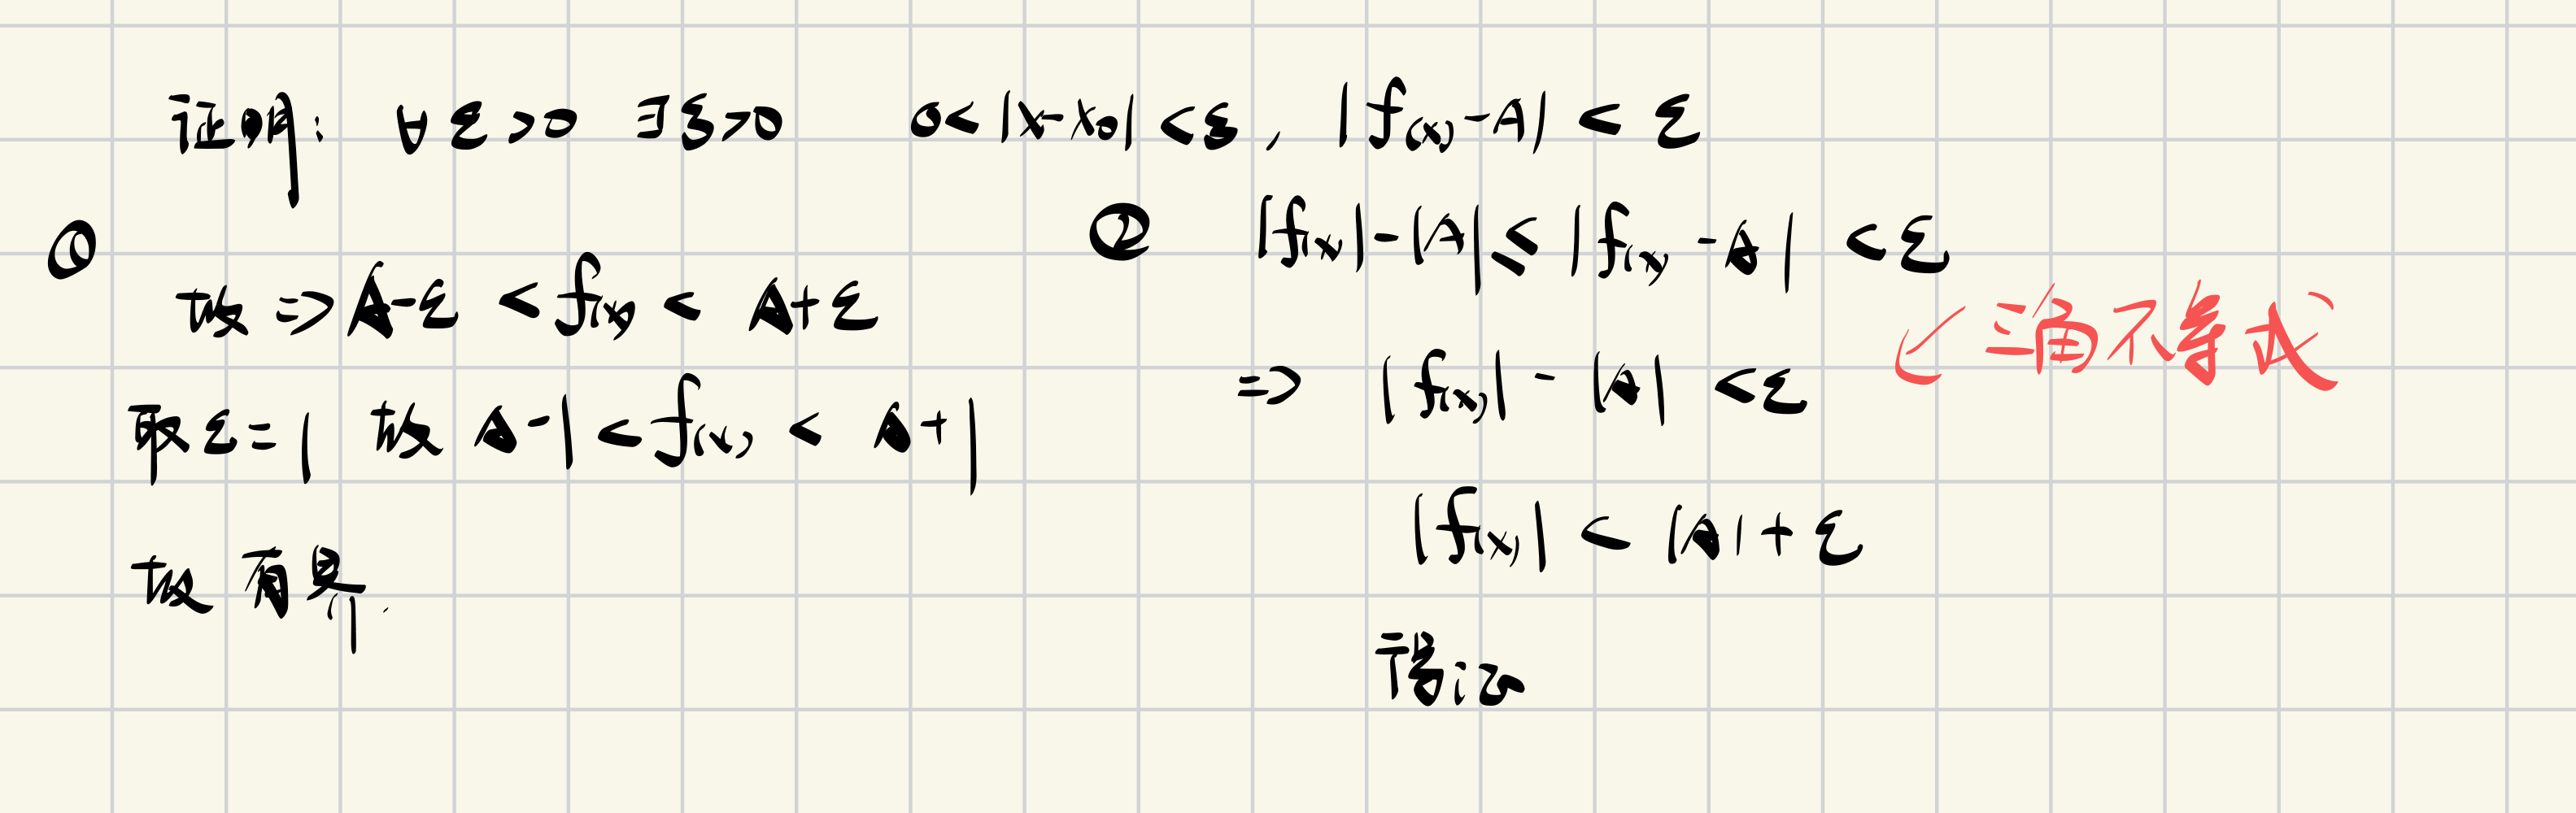 证明: ∀ε>0 ∃ξ>0 0<|x-x₀|<ξ, |f(x)-A|<ε
①
故 ⇒ A-ε<f(x)<A+ε
取ε=1 故 A-1<f(x)<A+1
故 有界.
② |f(x)|-|A|≤|f(x)-A|<ε
↙三角不等式
⇒ |f(x)|-|A|<ε
|f(x)|<|A|+ε
得证